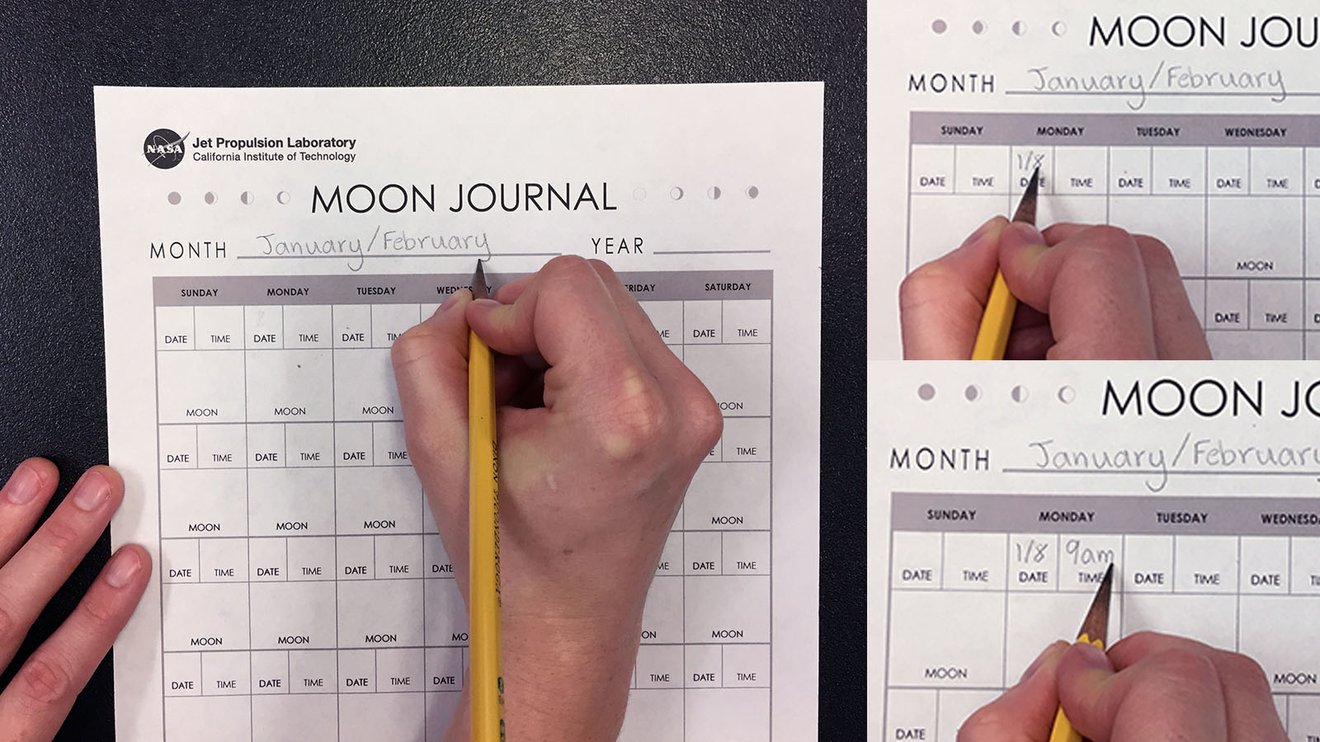 NASA Jet Propulsion Laboratory
California Institute of Technology
MOON JOURNAL
MONTH January/February YEAR
SUNDAY MONDAY TUESDAY WEDNESDAY FRIDAY SATURDAY
DATE TIME DATE TIME DATE TIME DATE TIME
MOON MOON MOON MOON
DATE TIME DATE TIME DATE TIME DATE TIME
MOON MOON MOON MOON
DATE TIME DATE TIME DATE TIME DATE TIME DATE TIME
MOON MOON MOON MO ON MOON
DATE TIME DATE TIME DATE TIME DATE TIME DATE TIME
MOON JOU
MONTH January/February
SUNDAY MONDAY TUESDAY WEDNESDAY
1/8
DATE TIME DATE TIME DATE TIME DATE TIME
MOON
DATE TIME
MOON JO
MONTH January/February
SUNDAY MONDAY TUESDAY WEDNESD
1/8 9am
DATE TIME DATE TIME DATE TIME DATE
MOON MOON
DATE